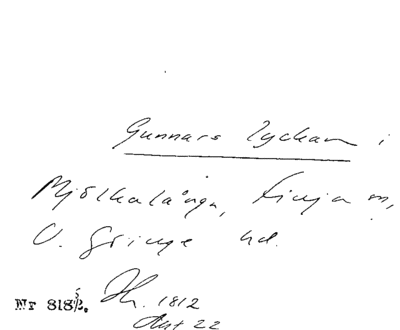 Gunnars lyckan i
Mjölkalånga, Finja sn,
V. Göinge hd.
Nr 818
Hr. 1812
Akt 22